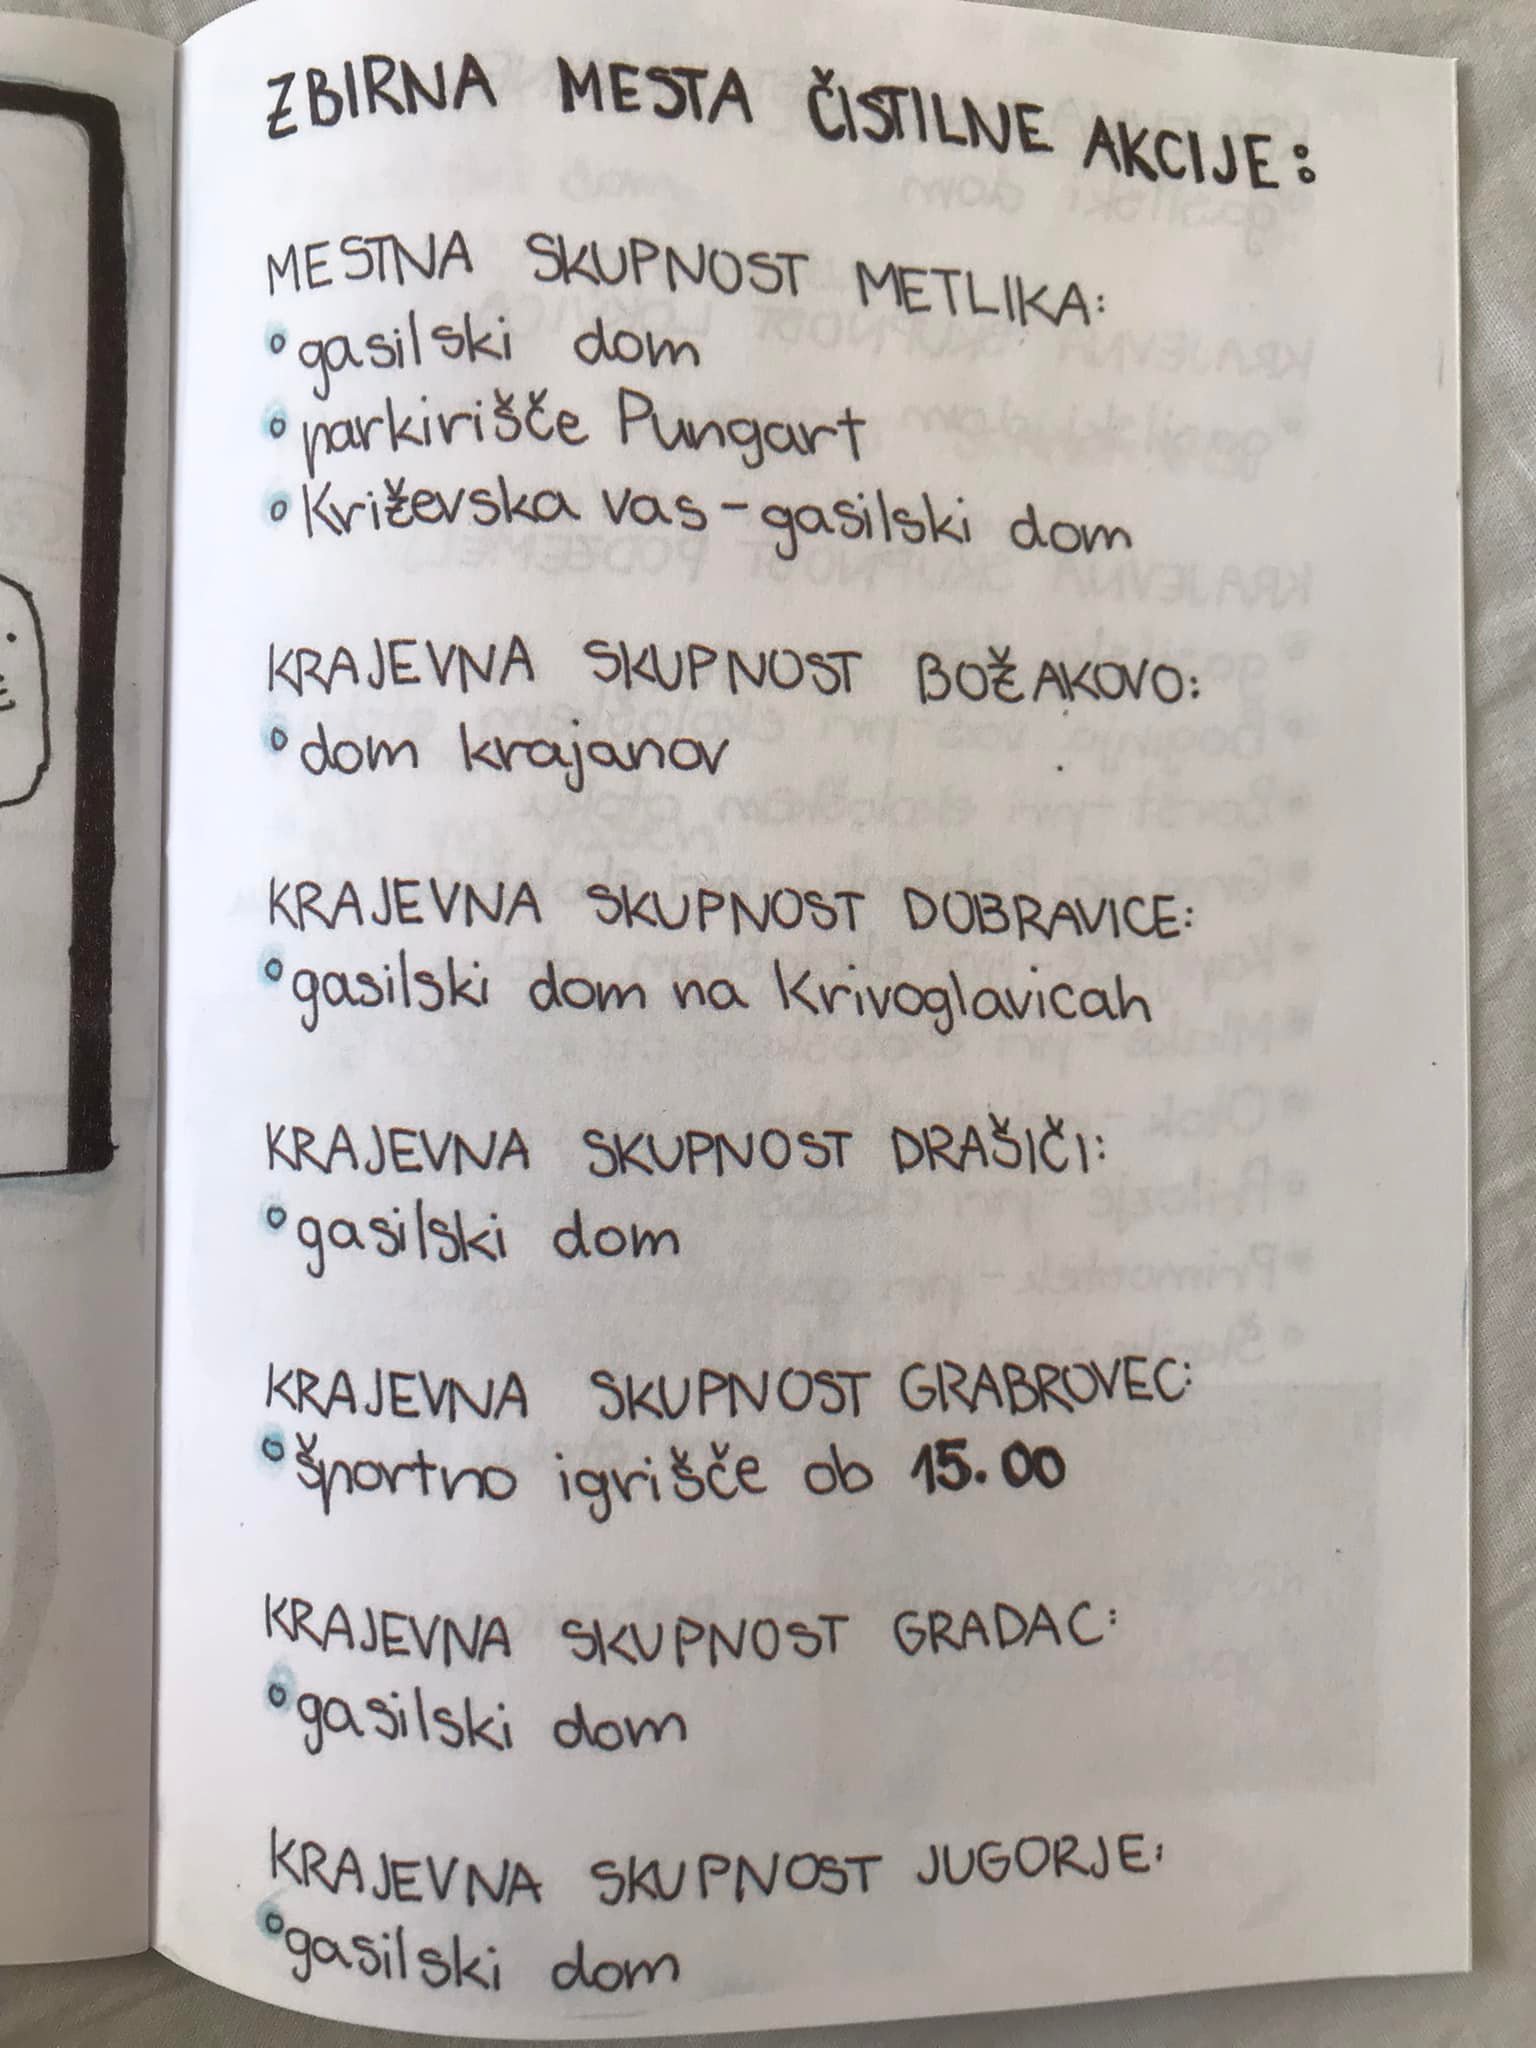 ZBIRNA MESTA ČISTILNE AKCIJE:
MESTNA SKUPNOST METLIKA:
gasilski dom
parkirišče Pungart
Križevska vas - gasilski dom
KRAJEVNA SKUPNOST BOŽAKOVO:
dom krajanov
KRAJEVNA SKUPNOST DOBRAVICE:
gasilski dom na Krivoglavicah
KRAJEVNA SKUPNOST DRAŠIČI:
gasilski dom
KRAJEVNA SKUPNOST GRABROVEC:
športno igrišče ob 15.00
KRAJEVNA SKUPNOST GRADAC:
gasilski dom
KRAJEVNA SKUPNOST JUGORJE:
gasilski dom